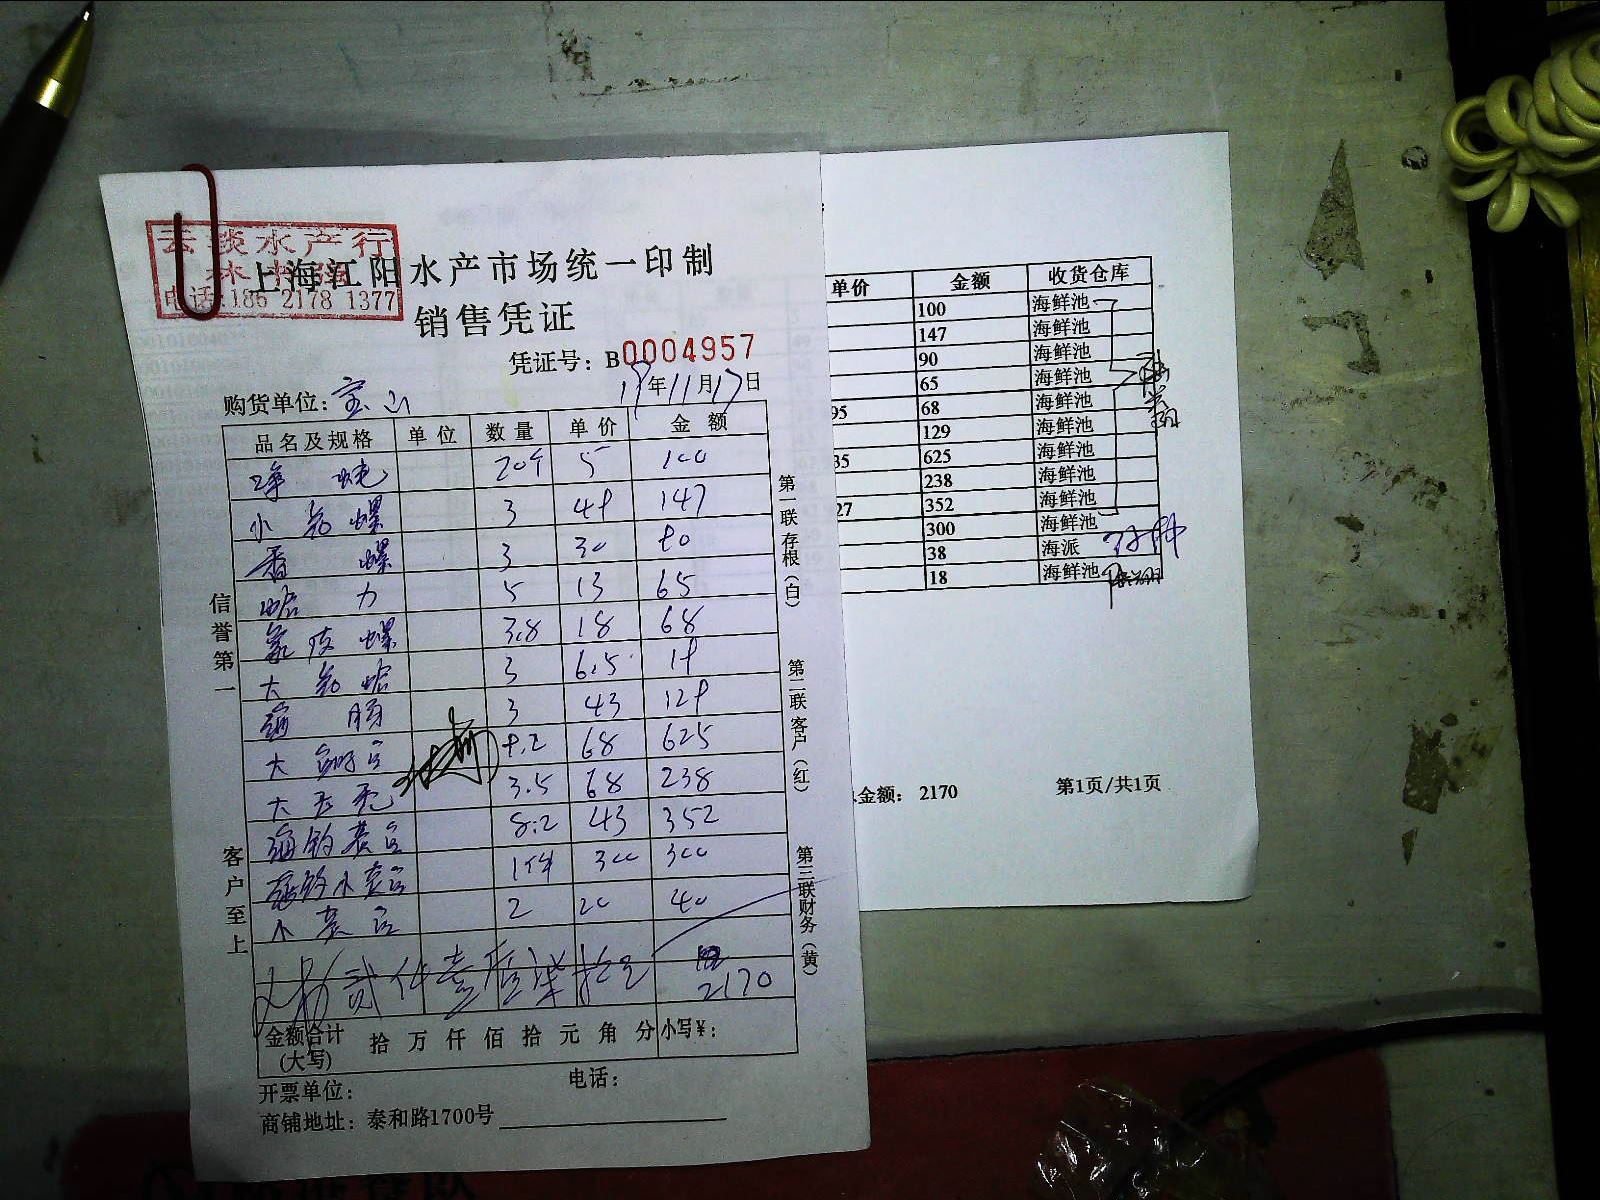 云淡水产行
电话:186 2178 1377
上海江阳水产市场统一印制
销售凭证
凭证号：B0004957
购货单位：宝山 19年11月17日
品名及规格 单位 数量 单价 金额
20个 5 100
小 螺 3 49 147
香螺 3 30 90
蛤 力 5 13 65
螺 3.8 18 68
大 蛤 3 6.5 19
海肠 3 43 129
大 9.2 68 625
大 3.5 68 238
海 8.2 43 352
小 1件 300 300
小 2 20 40
贰仟壹佰柒拾元 2170
金额合计(大写) 拾 万 仟 佰 拾 元 角 分 小写¥：
开票单位： 电话：
商铺地址：泰和路1700号
信誉第一
客户至上
第一联存根(白)
第二联客户(红)
第三联财务(黄)
单价 金额 收货仓库
100 海鲜池
147 海鲜池
90 海鲜池
65 海鲜池
95 68 海鲜池
129 海鲜池
35 625 海鲜池
238 海鲜池
27 352 海鲜池
300 海鲜池
38 海派
18 海鲜池
金额： 2170 第1页/共1页